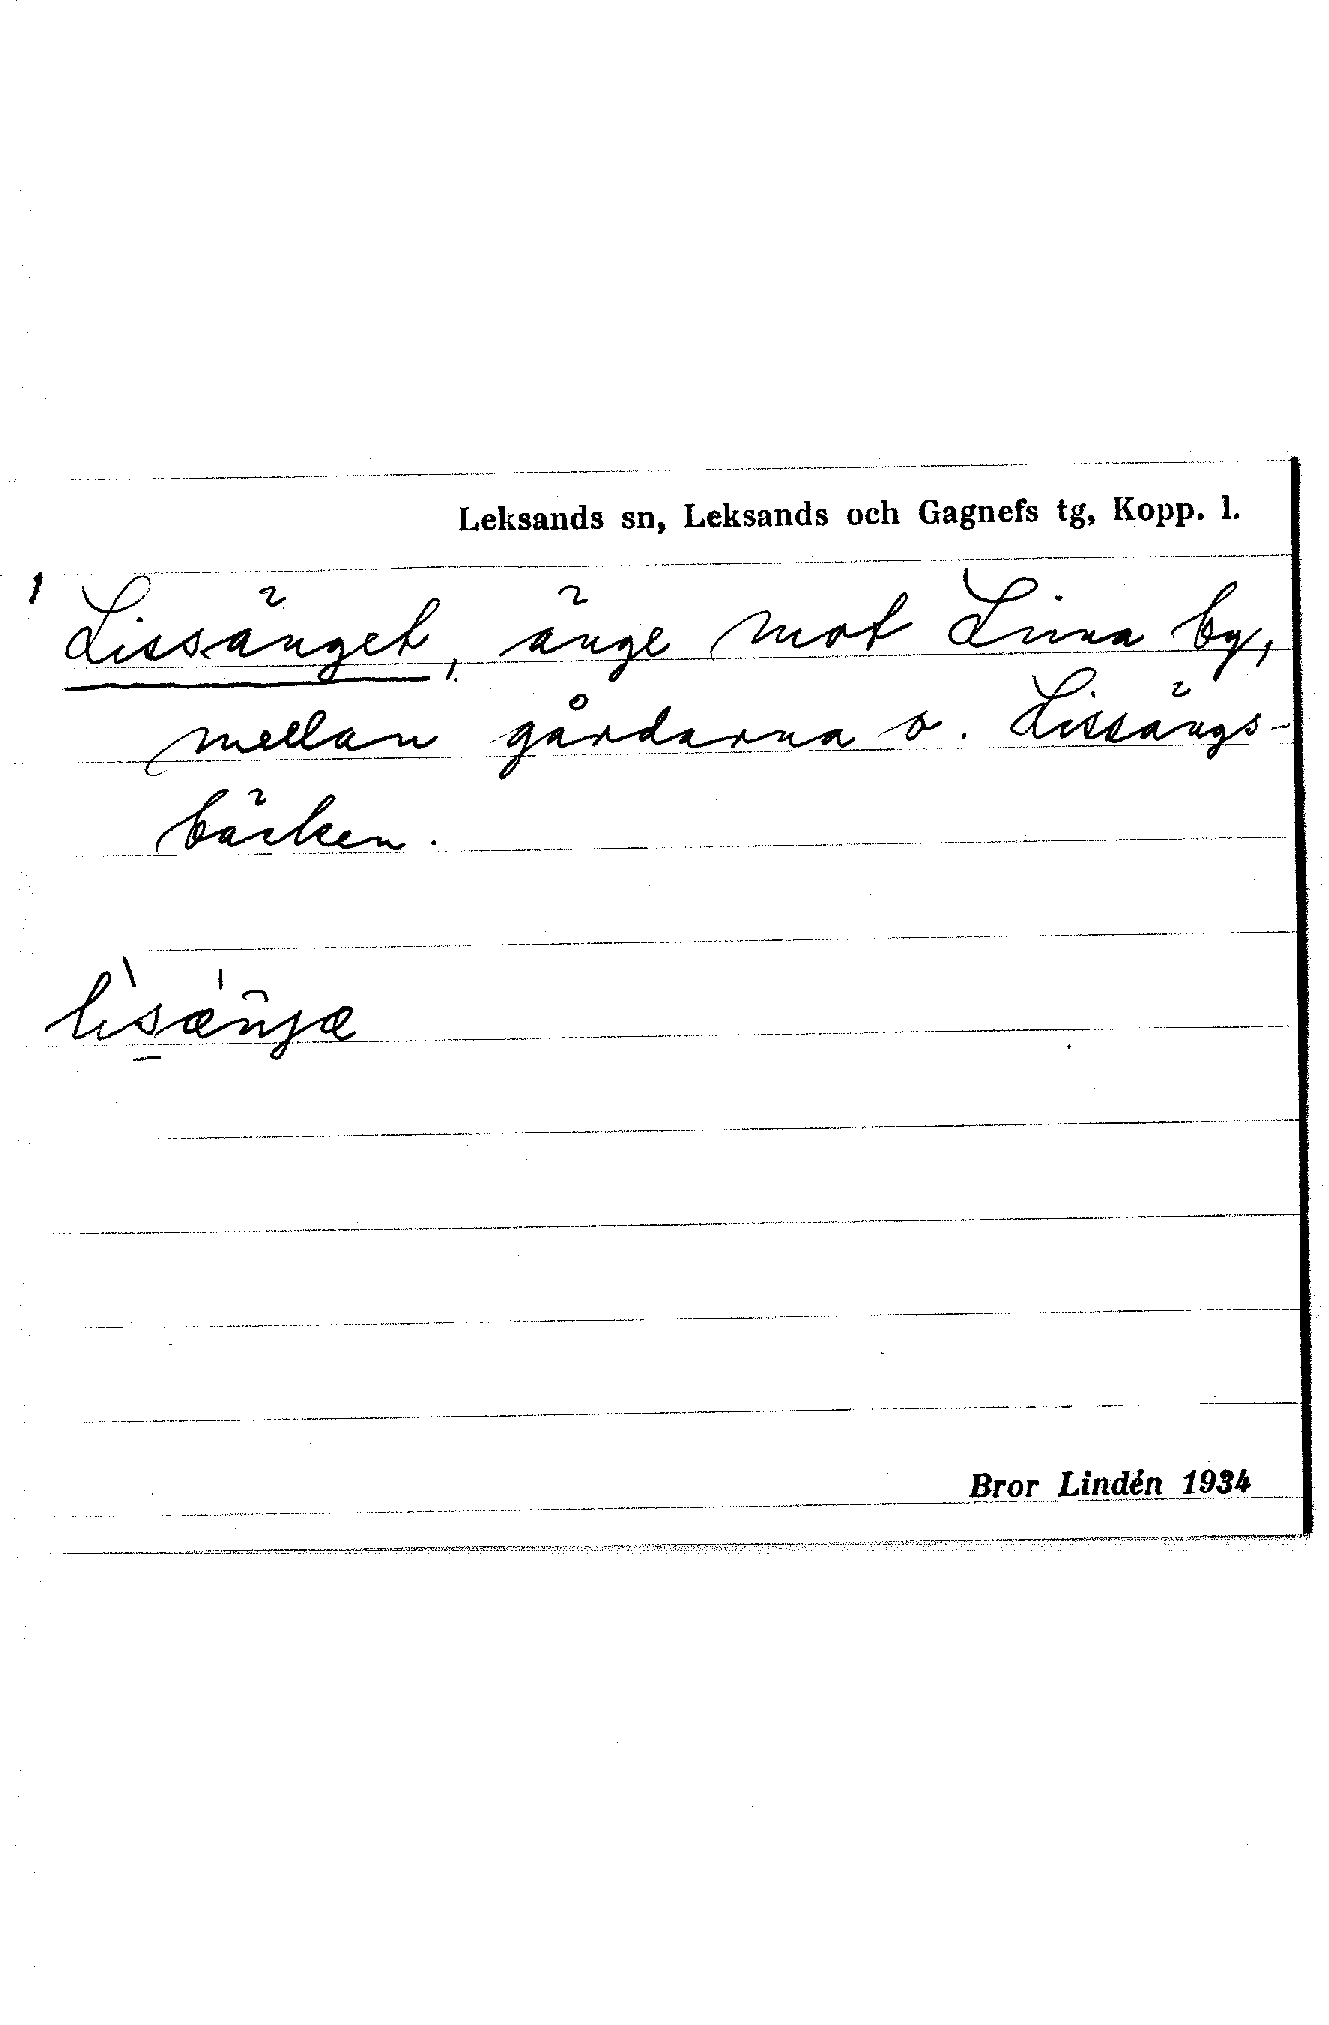 Leksands sn, Leksands och Gagnefs tg, Kopp. l.
1 Lissänget, änge mot Linna by,
mellan gårdarna o. Lissängs-
bäcken.
Bror Lindén 1934